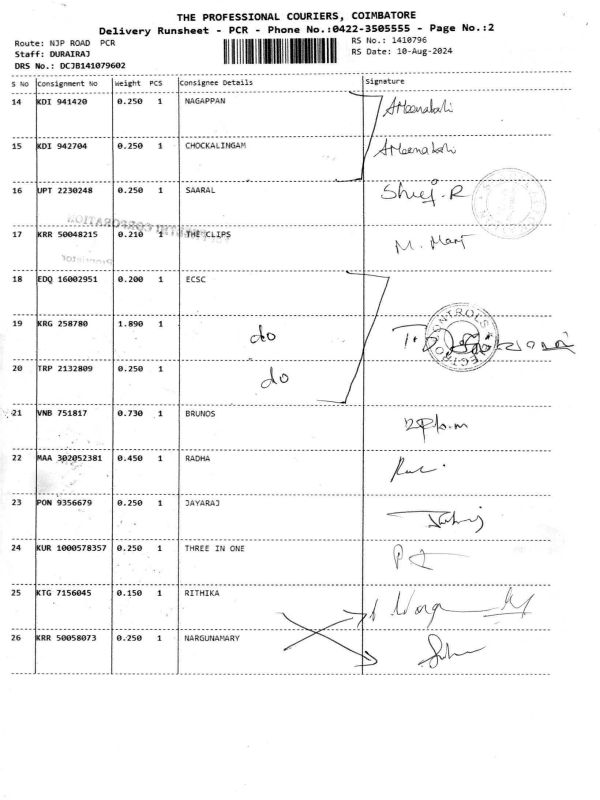 THE PROFESSIONAL COURIERS, COIMBATORE
Delivery Runsheet - PCR - Phone No.:0422-3505555 - Page No.:2
Route: NJP ROAD PCR
RS No.: 1410796
Staff: DURAIRAJ
RS Date: 10-Aug-2024
DRS No.: DCJB141079602
S No Consignment No Weight PCS Consignee Details Signature
14 KDI 941420 0.250 1 NAGAPPAN AMeenakshi
15 KDI 942704 0.250 1 CHOCKALINGAM AMeenakshi
16 UPT 2230248 0.250 1 SAARAL
CORPORATION
17 KRR 50048215 0.210 1 THE CLIPS M. Mary
Proprietor
18 EDQ 16002951 0.200 1 ECSC
19 KRG 258780 1.890 1 do
20 TRP 2132809 0.250 1 do
21 VNB 751817 0.730 1 BRUNOS
22 MAA 302052381 0.450 1 RADHA
23 PON 9356679 0.250 1 JAYARAJ
24 KUR 1000578357 0.250 1 THREE IN ONE
25 KTG 7156045 0.150 1 RITHIKA
26 KRR 50058073 0.250 1 NARGUNAMARY